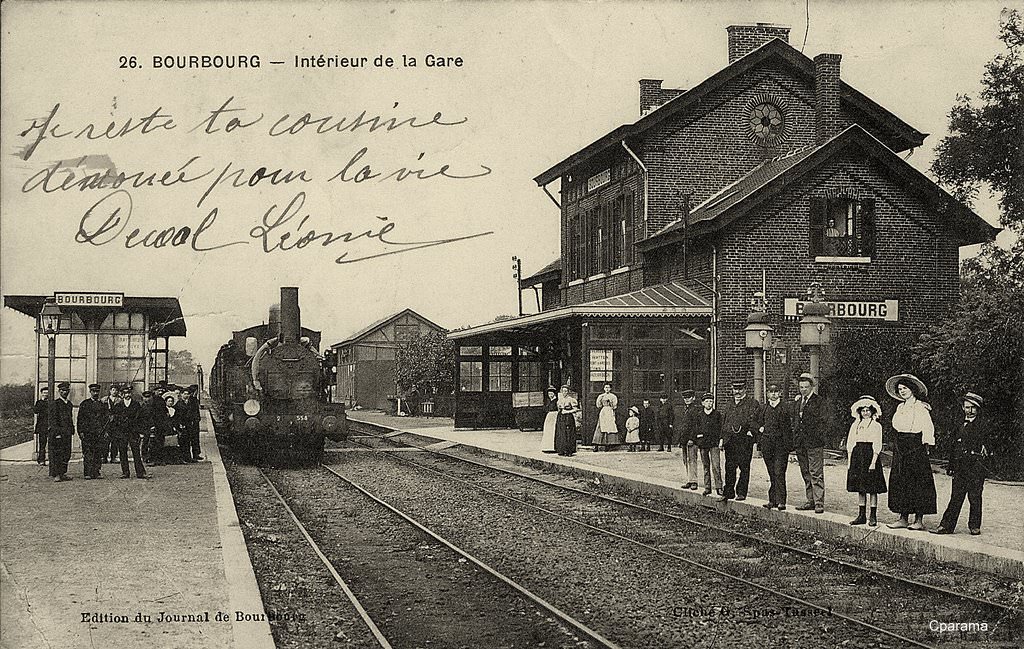 26. BOURBOURG — Intérieur de la Gare
Je reste ta cousine
dévouée pour la vie
Léonie
BOURBOURG
BOURBOURG
Edition du Journal de Bourbourg
Cliché
Cparama